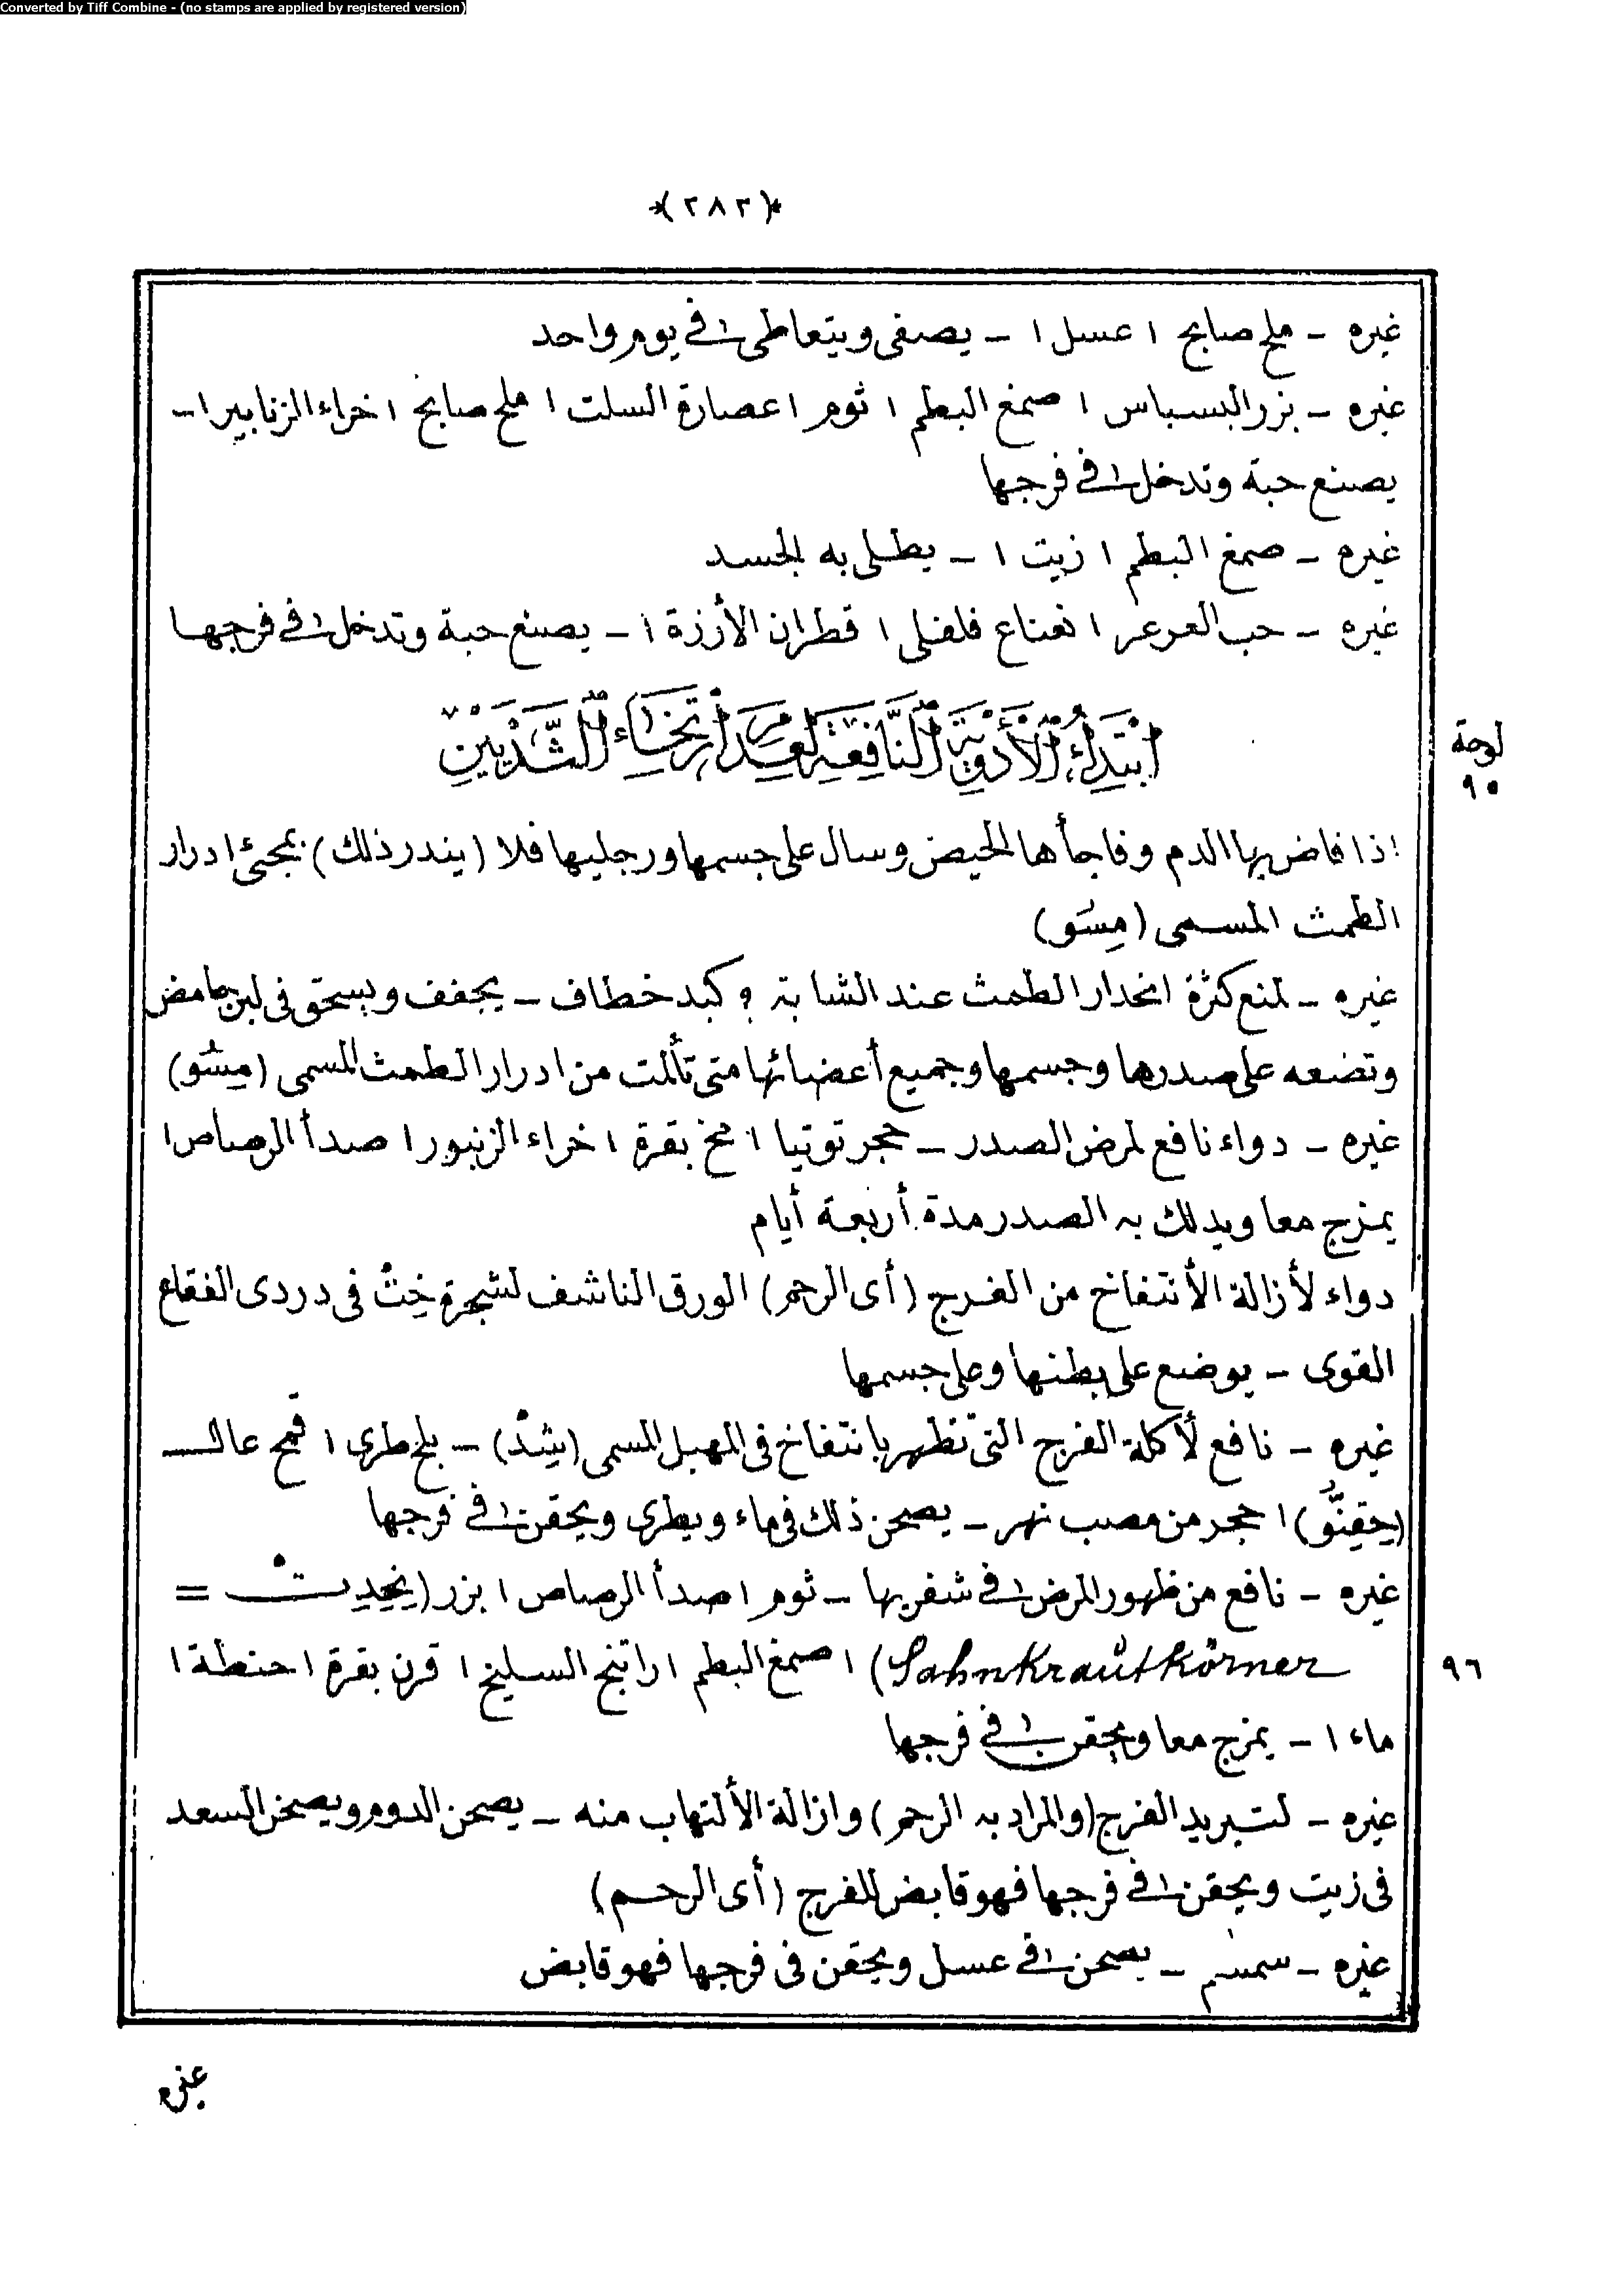 Converted by Tiff Combine - (no stamps are applied by registered version)
*(٢٨٢)*
غيره – ملح صابح ١ عسل ١ – يصفى ويتعاطى ١ فى يوم واحد
غيره – بزر البسباس ١ صمغ البطم ١ ثوم ١ عصارة السلت ١ ملح صابح ١ خراء الزنابير ١ –
يصنع حبة وتدخل ١ فى فرجها
غيره – صمغ البطم ١ زيت ١ – يطلى به الجسد
غيره – حب العرعر ١ نعناع فلفلى ١ قطران الأرزة ١ – يصنع حبة وتدخل ١ فى فرجها
ابْتِدَاءُ الْأَدْوِيَةِ النَّافِعَةِ لِعَدَمِ ارْتِخَاءِ الثَّدْيَيْنِ
لوحة
٩٥
اذا فاض بها الدم وفاجأها الحيض وسال على جسمها ورجليها فلا (يندر ذلك) بمجئ ادرار
الطمث المسمى (مِسُو)
غيره – لمنع كثرة انحدار الطمث عند الشابة ؟ كبد خطاف – يجفف ويسحق فى لبن حامض
وتضعه على صدرها وجسمها وجميع أعضائها متى تألمت من ادرار الطمث المسمى (مِسُو)
غيره – دواء نافع لمرض الصدر – حجر توتيا ١ مخ بقرة ١ خراء الزنبور ١ صدأ الرصاص ١
يمزج معا ويدلك به الصدر مدة أربعة أيام
دواء لأزالة الأنتفاخ من الفرج (أى الرحم) الورق الناشف لشجرة خِتْ فى دردى الفقاع
القوى – يوضع على بطنها وعلى جسمها
غيره – نافع لأكلة الفرج التى تظهر بانتفاخ فى المهبل المسمى (يِشِدْ) – بلح طرى ١ قمح عال
(حِقِنُّو) ١ حجر من مصب نهر – يصحن ذلك فى ماء ويطرى ويحقن ١ فى فرجها
غيره – نافع من ظهور المرض ١ فى شفريها – ثوم ١ صدأ الرصاص ١ بزر (يِنْحِدِيتْ =
Sahnkrautkörner) ١ صمغ البطم ١ راتنج السليخ ١ قرن بقرة ١ حنطة ١
٩٦
ماء ١ – يمزج معا ويحقن ١ فى فرجها
غيره – لتبريد الفرج (والمراد به الرحم) وازالة الألتهاب منه – يصحن الدوم ويصحن السعد
فى زيت ويحقن ١ فى فرجها فهو قابض للفرج (أى الرحم)
غيره – سمسم – يصحن ١ فى عسل ويحقن فى فرجها فهو قابض
غيره